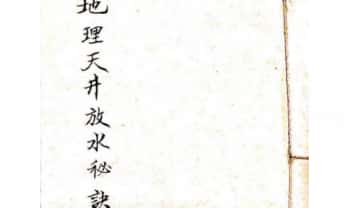 地理天井放水秘訣